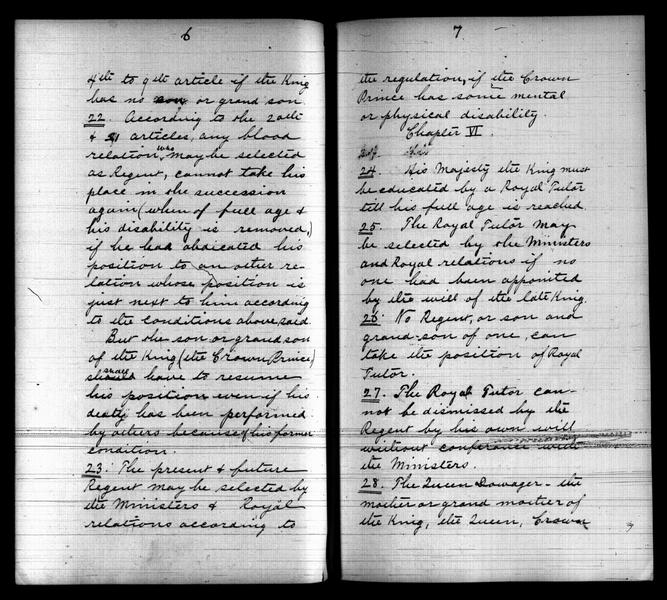 6
4th to 9th article if the King
has no son or grand son.
22. According to the 20th
& 21 articles, any blood
relation, who may be selected
as Regent, cannot take his
place in the succession
again (when of full age &
his disability is removed,)
if he had abdicated his
position to an other re-
lation whose position is
just next to him according
to the conditions above, said.
But the son or grand son
of the King (the Crown Prince)
shall have to resume
his position even if his
deaty has been performed
by others because of his former
condition.
23. The present & future
Regent may be selected by
the Ministers & Royal
relations according to
7
the regulation, if the Crown
Prince has some mental
or physical disability.
Chapter VI.
His
24. His Majesty the King must
be educated by a Royal Tutor
till his full age is reached
25. The Royal Tutor may
be selected by the Ministers
and Royal relations if no
one had been appointed
by the will of the late King.
26. No Regent, or son and
grand-son of one, can
take the position of Royal
Tutor.
27. The Royal Tutor can-
not be dismissed by the
Regent by his own will
without conference with
the Ministers.
28. The Queen Dowager - the
mother or grand mother of
the King, the Queen, Crown